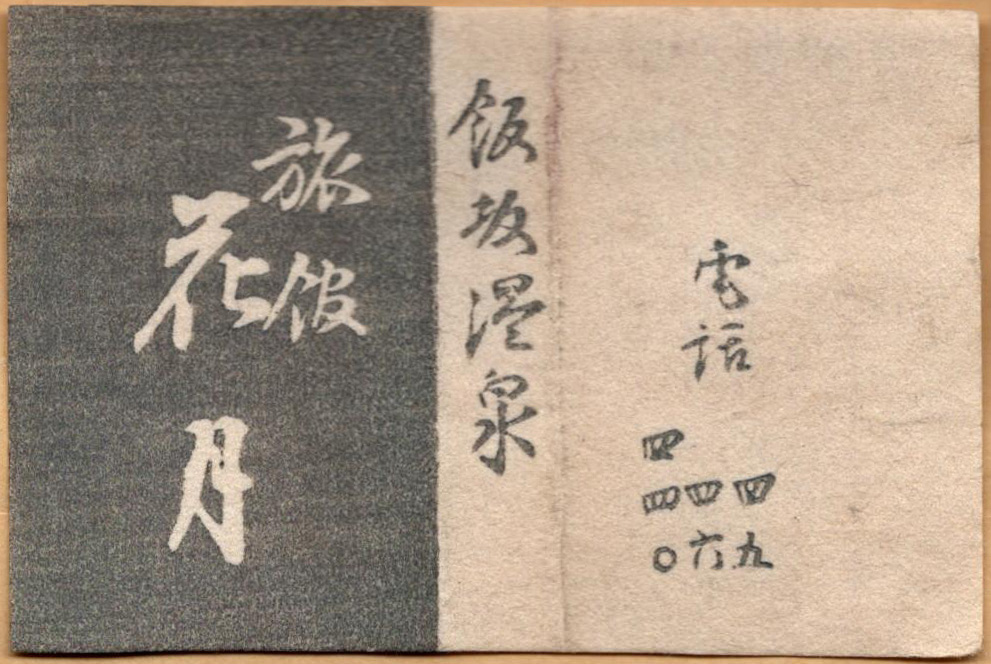 電話
四九
四六
四四〇
飯坂温泉
旅館
花月